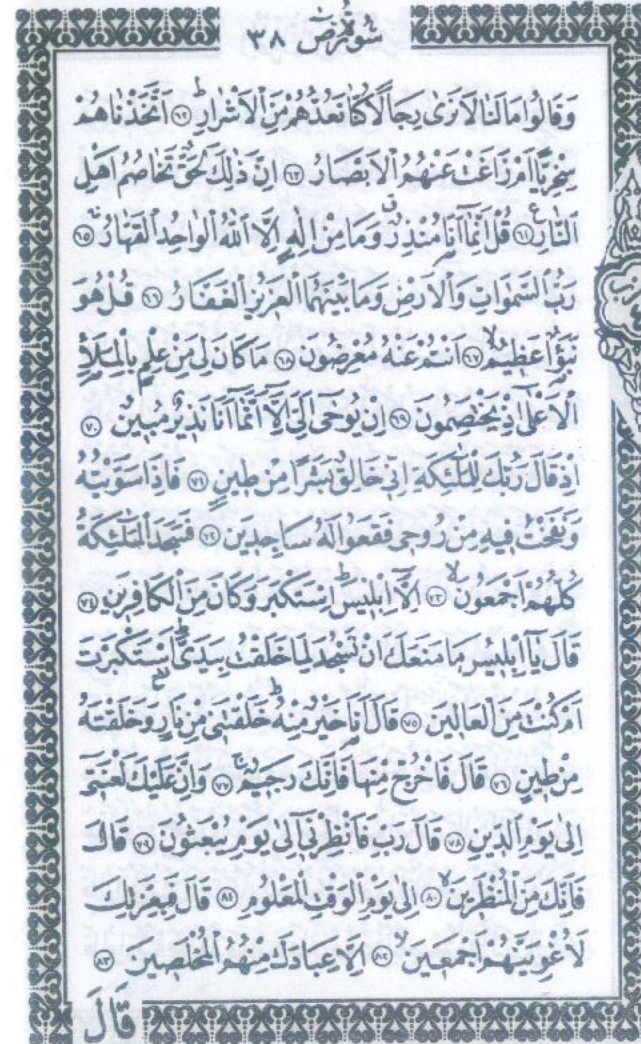 سُورَةُ صٓ ٣٨
وَقَالُوا مَا لَنَا لَا نَرٰى رِجَالًا كُنَّا نَعُدُّهُمْ مِنَ الْاَشْرَارِ ﴿٦٢﴾ اَتَّخَذْنَاهُمْ
سِخْرِيًّا اَمْ زَاغَتْ عَنْهُمُ الْاَبْصَارُ ﴿٦٣﴾ اِنَّ ذٰلِكَ لَحَقٌّ تَخَاصُمُ اَهْلِ
النَّارِ ﴿٦٤﴾ قُلْ اِنَّمَٓا اَنَا۬ مُنْذِرٌ وَمَا مِنْ اِلٰهٍ اِلَّا اللّٰهُ الْوَاحِدُ الْقَهَّارُ ﴿٦٥﴾
رَبُّ السَّمٰوَاتِ وَالْاَرْضِ وَمَا بَيْنَهُمَا الْعَزِيزُ الْغَفَّارُ ﴿٦٦﴾ قُلْ هُوَ
نَبَؤٌا عَظِيمٌ ﴿٦٧﴾ اَنْتُمْ عَنْهُ مُعْرِضُونَ ﴿٦٨﴾ مَا كَانَ لِيَ مِنْ عِلْمٍ بِالْمَلَاِ
الْاَعْلٰٓى اِذْ يَخْتَصِمُونَ ﴿٦٩﴾ اِنْ يُوحٰٓى اِلَيَّ اِلَّٓا اَنَّمَٓا اَنَا۬ نَذِيرٌ مُبِينٌ ﴿٧٠﴾
اِذْ قَالَ رَبُّكَ لِلْمَلٰٓئِكَةِ اِنِّي خَالِقٌ بَشَرًا مِنْ طِينٍ ﴿٧١﴾ فَاِذَا سَوَّيْتُهُ
وَنَفَخْتُ فِيهِ مِنْ رُوحِي فَقَعُوا لَهُ سَاجِدِينَ ﴿٧٢﴾ فَسَجَدَ الْمَلٰٓئِكَةُ
كُلُّهُمْ اَجْمَعُونَ ﴿٧٣﴾ اِلَّٓا اِبْلِيسَ اِسْتَكْبَرَ وَكَانَ مِنَ الْكَافِرِينَ ﴿٧٤﴾
قَالَ يَٓا اِبْلِيسُ مَا مَنَعَكَ اَنْ تَسْجُدَ لِمَا خَلَقْتُ بِيَدَيَّ اَسْتَكْبَرْتَ
اَمْ كُنْتَ مِنَ الْعَالِينَ ﴿٧٥﴾ قَالَ اَنَا۬ خَيْرٌ مِنْهُ خَلَقْتَنِي مِنْ نَارٍ وَخَلَقْتَهُ
مِنْ طِينٍ ﴿٧٦﴾ قَالَ فَاخْرُجْ مِنْهَا فَاِنَّكَ رَجِيمٌ ﴿٧٧﴾ وَاِنَّ عَلَيْكَ لَعْنَتِي
اِلٰى يَوْمِ الدِّينِ ﴿٧٨﴾ قَالَ رَبِّ فَاَنْظِرْنِٓي اِلٰى يَوْمِ يُبْعَثُونَ ﴿٧٩﴾ قَالَ
فَاِنَّكَ مِنَ الْمُنْظَرِينَ ﴿٨٠﴾ اِلٰى يَوْمِ الْوَقْتِ الْمَعْلُومِ ﴿٨١﴾ قَالَ فَبِعِزَّتِكَ
لَاُغْوِيَنَّهُمْ اَجْمَعِينَ ﴿٨٢﴾ اِلَّا عِبَادَكَ مِنْهُمُ الْمُخْلَصِينَ ﴿٨٣﴾
قَالَ